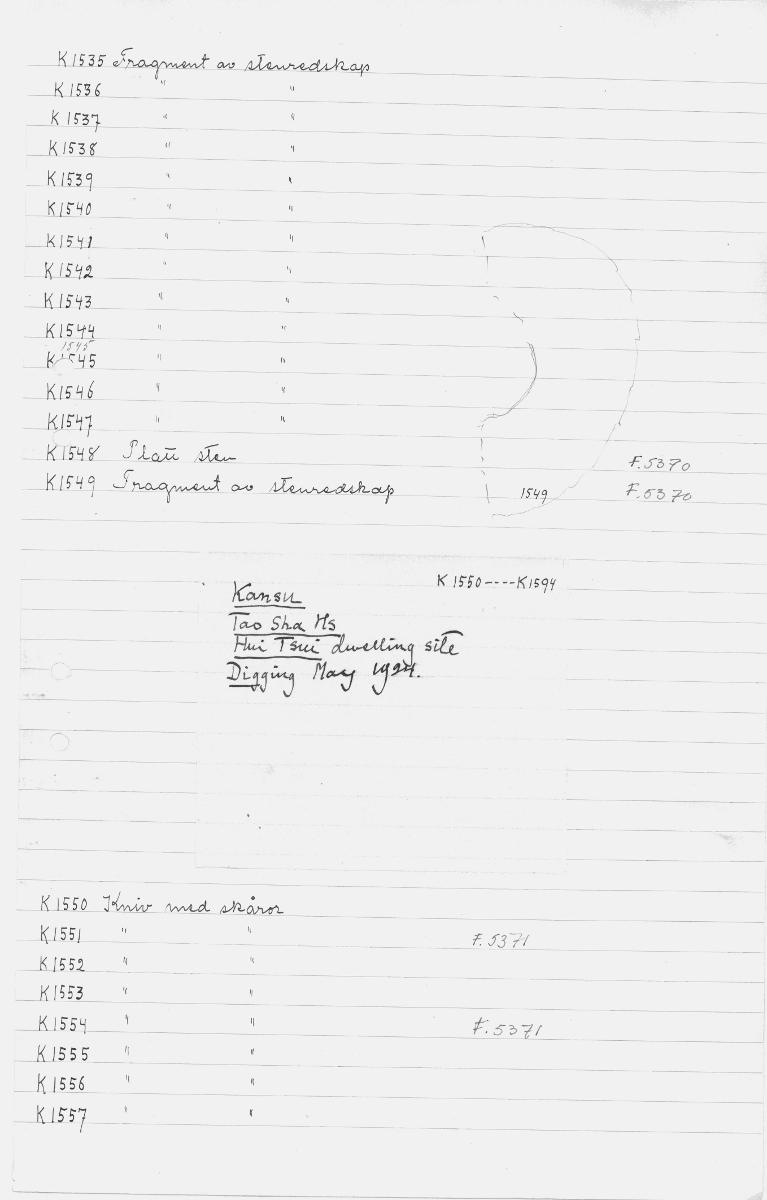 K1535 Fragment av stenredskap
K1536 " "
K1537 " "
K1538 " "
K1539 " "
K1540 " "
K1541 " "
K1542 " "
K1543 " "
K1544 " "
1545
K1545 " "
K1546 " "
K1547 " "
K1548 Platt sten F.5370
K1549 Fragment av stenredskap 1549 F.5370
K1550----K1594
Kansu
Tao Sha Hs
Hui Tsui dwelling site
Digging May 1924.
K1550 Kniv med skåror
K1551 " " F.5371
K1552 " "
K1553 " "
K1554 " " F.5371
K1555 " "
K1556 " "
K1557 " "